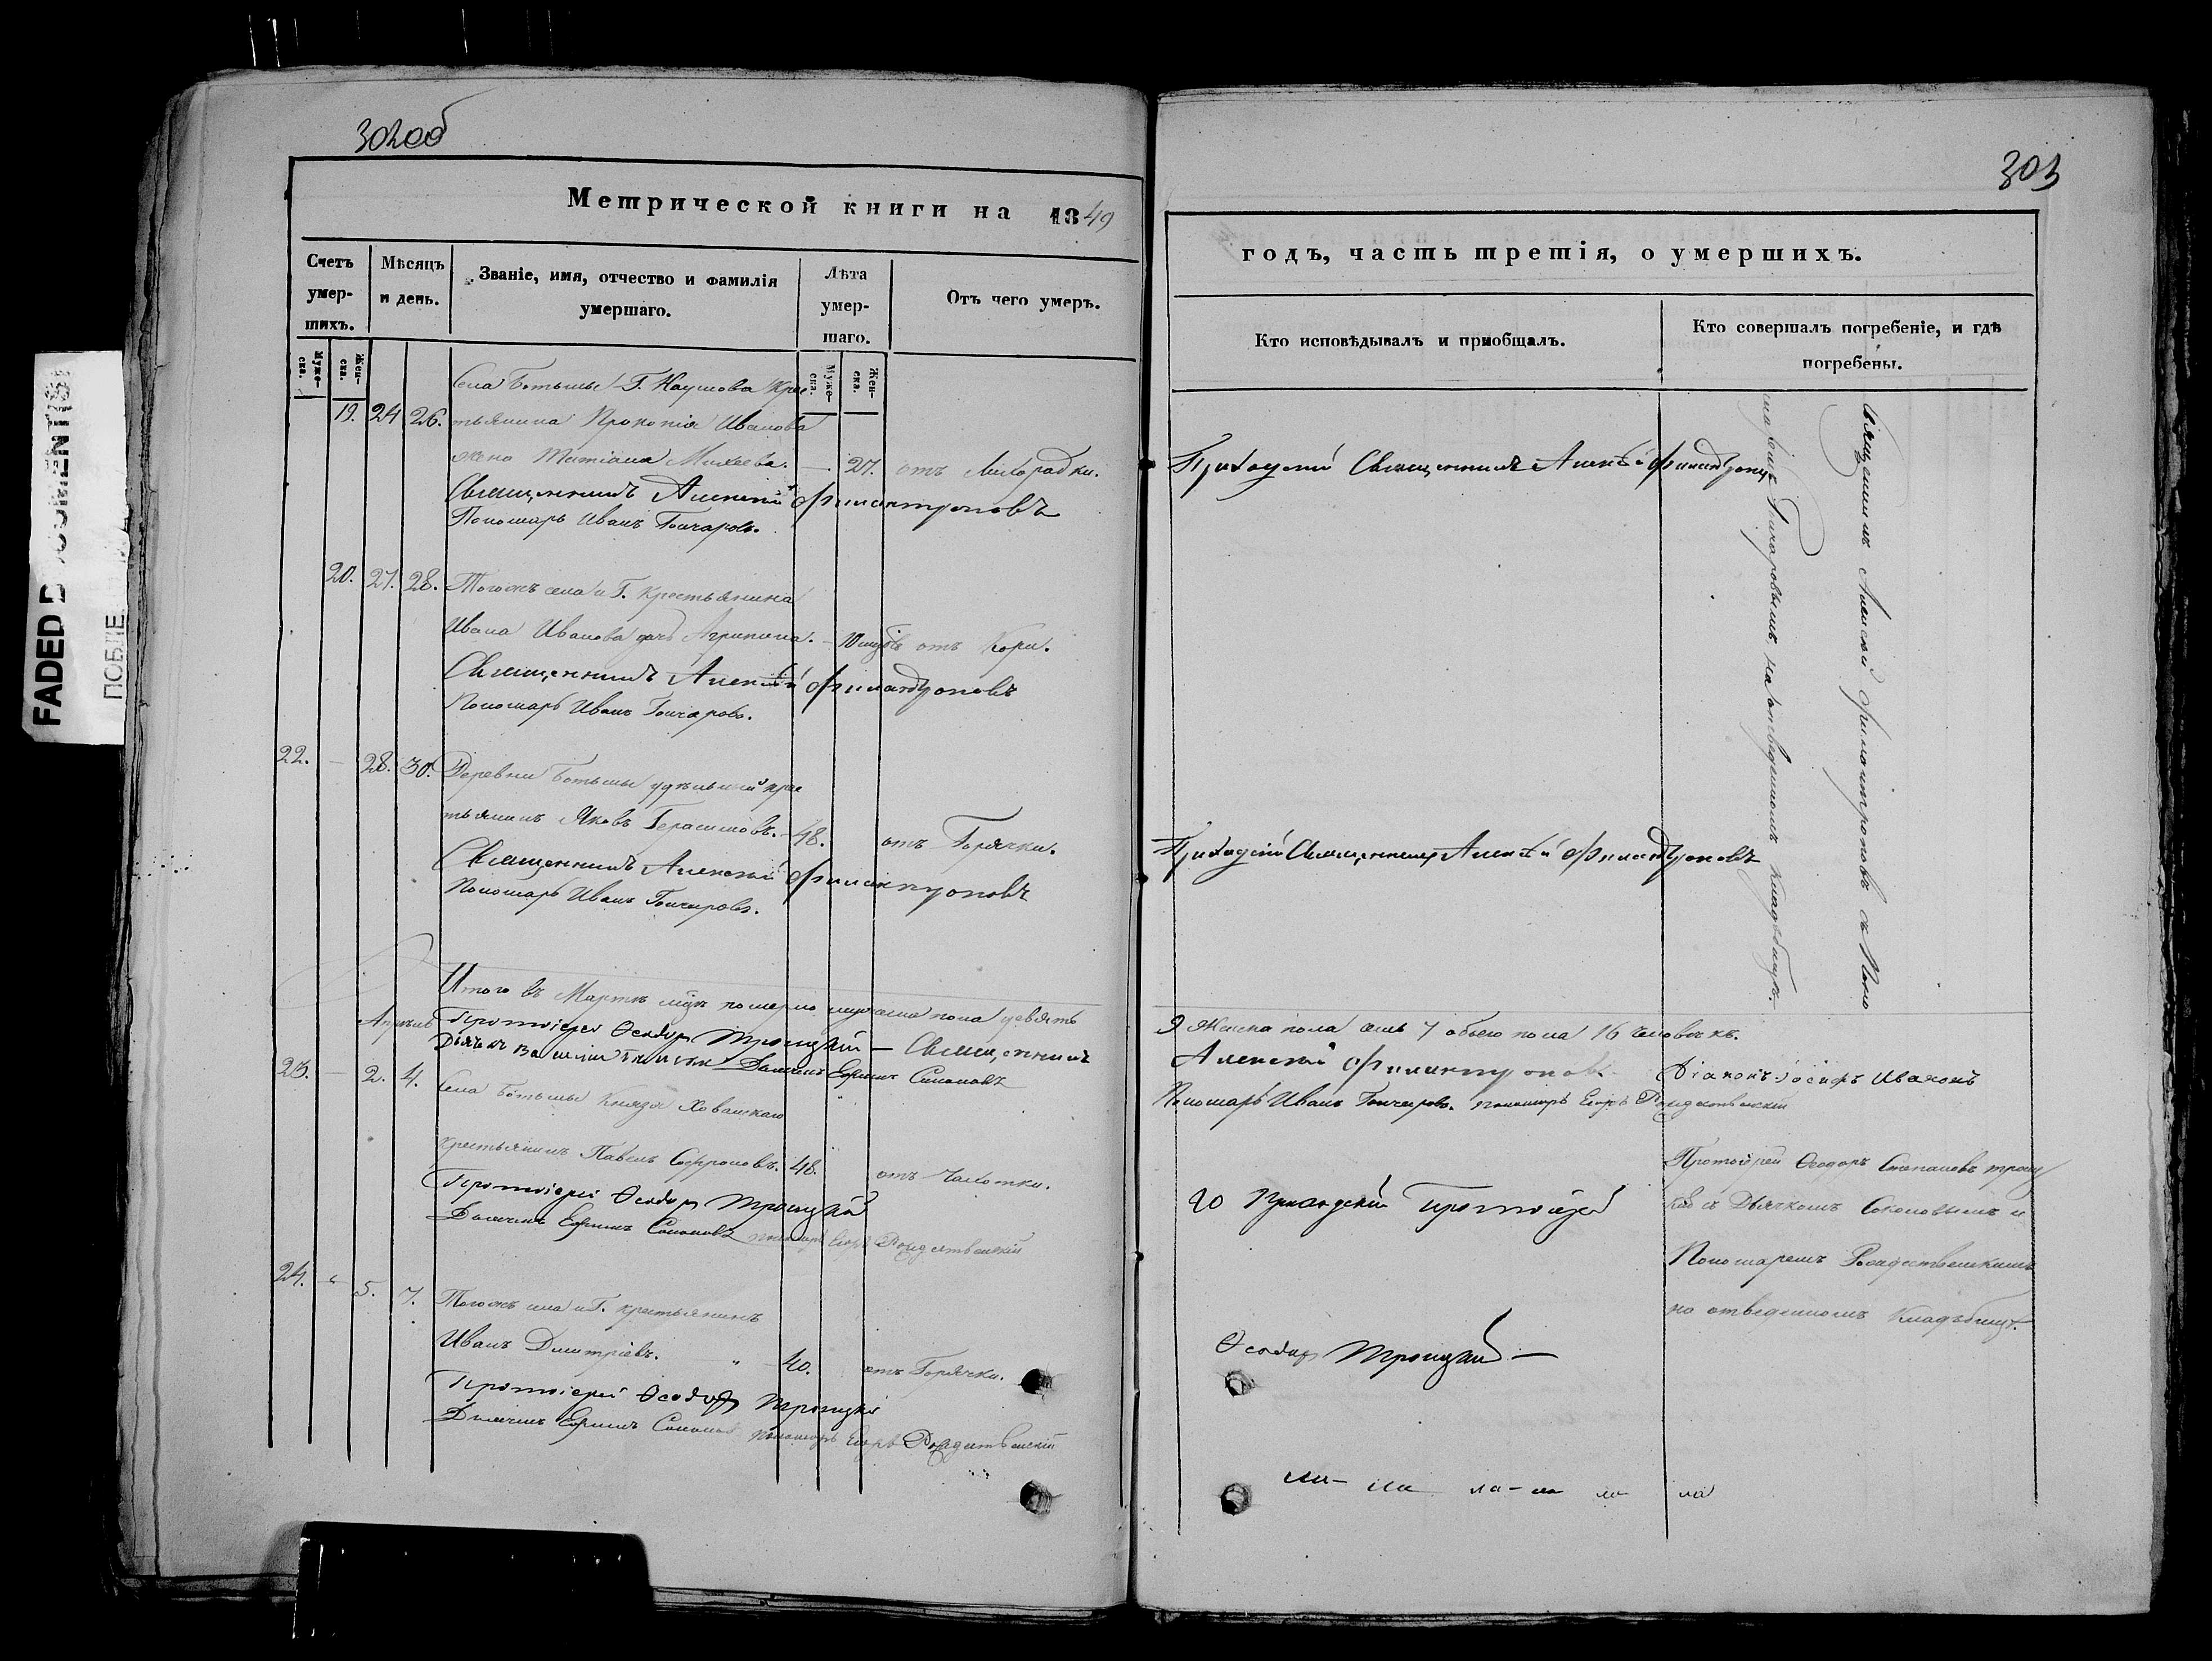 302об
Метрической книги на 1849
Счетъ умер-шихъ.
Мѣсяцъ и день.
Званіе, имя, отчество и фамилія умершаго.
Лѣта умер-шаго.
Отъ чего умеръ.
Муже-ска.
Жен-ска.
Муже-ска.
Жен-ска.
Села Ботьмы Г. Наумова крес
19. 24 26. тьянина Прокопія Иванова
жена Татіана Михеева. — 27. отъ Лихорадки.
Священникъ Алексѣй Филантроповъ
Пономарь Иванъ Гончаровъ.
20. 27. 28. Тогожъ села и Г. крестьянина
Ивана Иванова дочь Агрипина. — отъ Кори.
Священникъ Алексѣй Филантроповъ
Пономарь Иванъ Гончаровъ.
22. — 28. 30. Деревни Ботьмы удѣльный крес
тьянинъ Яковъ Герасимовъ. 48. отъ Горячки.
Священникъ Алексѣй Филантроповъ
Пономарь Иванъ Гончаровъ.
Итого въ Мартѣ мцѣ померло мужеска пола девять
Апрѣль Протоіерей Ѳеодоръ Троицкій — Священникъ
23. — 2. 4. Села Ботьмы Князя Хованскаго
крестьянинъ Павелъ Софроновъ. 48. отъ Чахотки.
Протоіерей Ѳеодоръ Троицкій
Дьячекъ Ефимъ Соколовъ пономарь Егоръ Рождественскій
24. 5. 7. Тогожъ села и Г. крестьянинъ
Иванъ Димитріевъ. 40. отъ Горячки.
Протоіерей Ѳеодоръ Троицкій
Дьячекъ Ефимъ Соколовъ пономарь Егоръ Рождественскій
303
годъ, часть третія, о умершихъ.
Кто исповѣдывалъ и пріобщалъ.
Кто совершалъ погребеніе, и гдѣ погребены.
Приходскій Священникъ Алексѣй Филантроповъ
Священникъ Алексѣй Филантроповъ съ Поно
маремъ Гончаровымъ на отведенномъ кладьбищѣ.
Приходскій Священникъ Алексѣй Филантроповъ
9 Женска пола семь 7 обоего пола 16 человѣкъ.
Алексѣй Филантроповъ Діаконъ Іосифъ Ивановъ
Пономарь Иванъ Гончаровъ. пономарь Егоръ Рождественскій
Протоіерей Ѳеодоръ Степановъ Троиц
кій съ Дьячкомъ Соколовымъ и
Пономаремъ Рождественскимъ
на отведенномъ Кладьбищѣ.
Приходскій Протоіерей
Ѳеодоръ Троицкій —
FADED DOCUMENT(S)